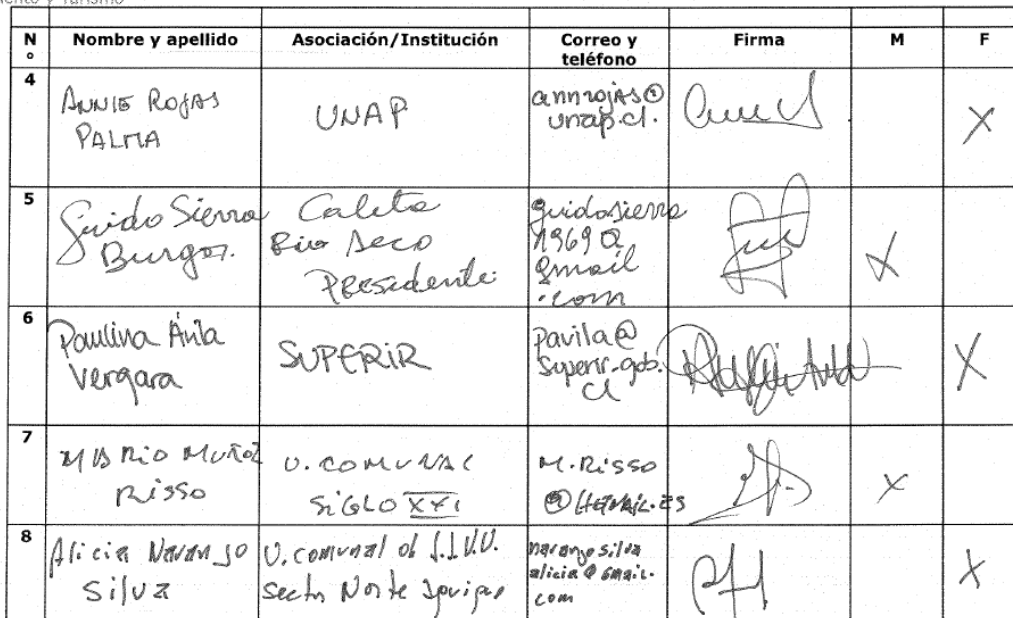 N° Nombre y apellido Asociación/Institución Correo y teléfono Firma M F
4
ANNIE ROJAS
PALMA
UNAP
annrojas@
unap.cl.
X
5
Guido Sierra
Burgos.
Caleta
Rio Seco
Presidente
guidosierra
1969@
gmail
.com
X
6
Paulina Ávila
Vergara
SUPERIR
pavila@
superir.gob.
cl
X
7
MARIO MUÑOZ
RISSO
U. COMUNAL
SIGLO XXI
M.RISSO
@HOTMAIL.ES
X
8
Alicia Naranjo
Silva
U. comunal de J.J.V.V.
Sector Norte Iquique
naranjosilva
alicia@gmail.
com
X